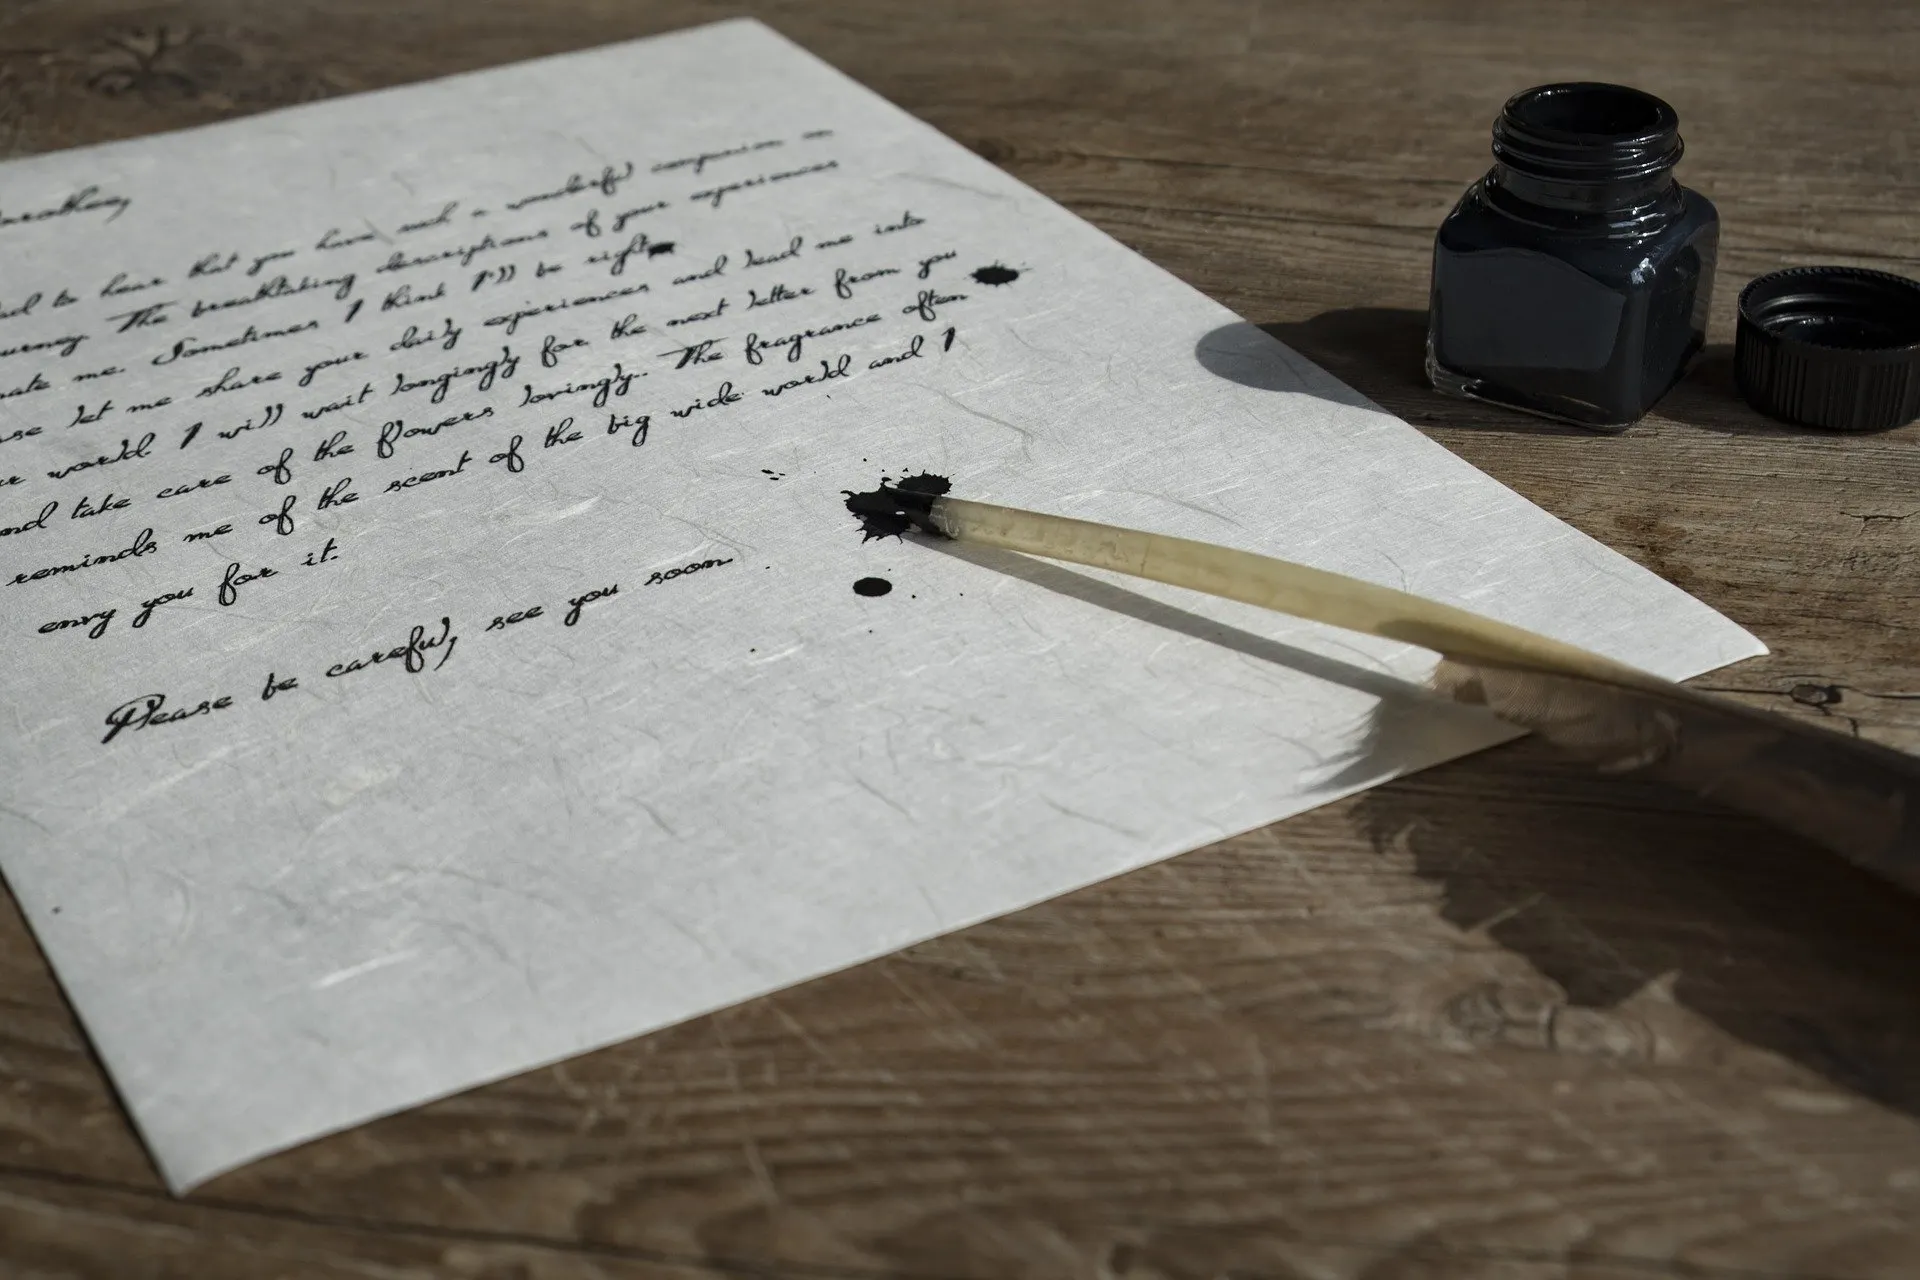 orothea,
ad to hear that you have such a wonderful companion on
urney. The breathtaking descriptions of your experiences
nate me. Sometimes I think I'll be right
se let me share your daily experiences and lead me into
ur world. I will wait longingly for the next letter from you
nd take care of the flowers lovingly.. The fragrance often
reminds me of the scent of the big wide world and I
envy you for it.
Please be careful, see you soon